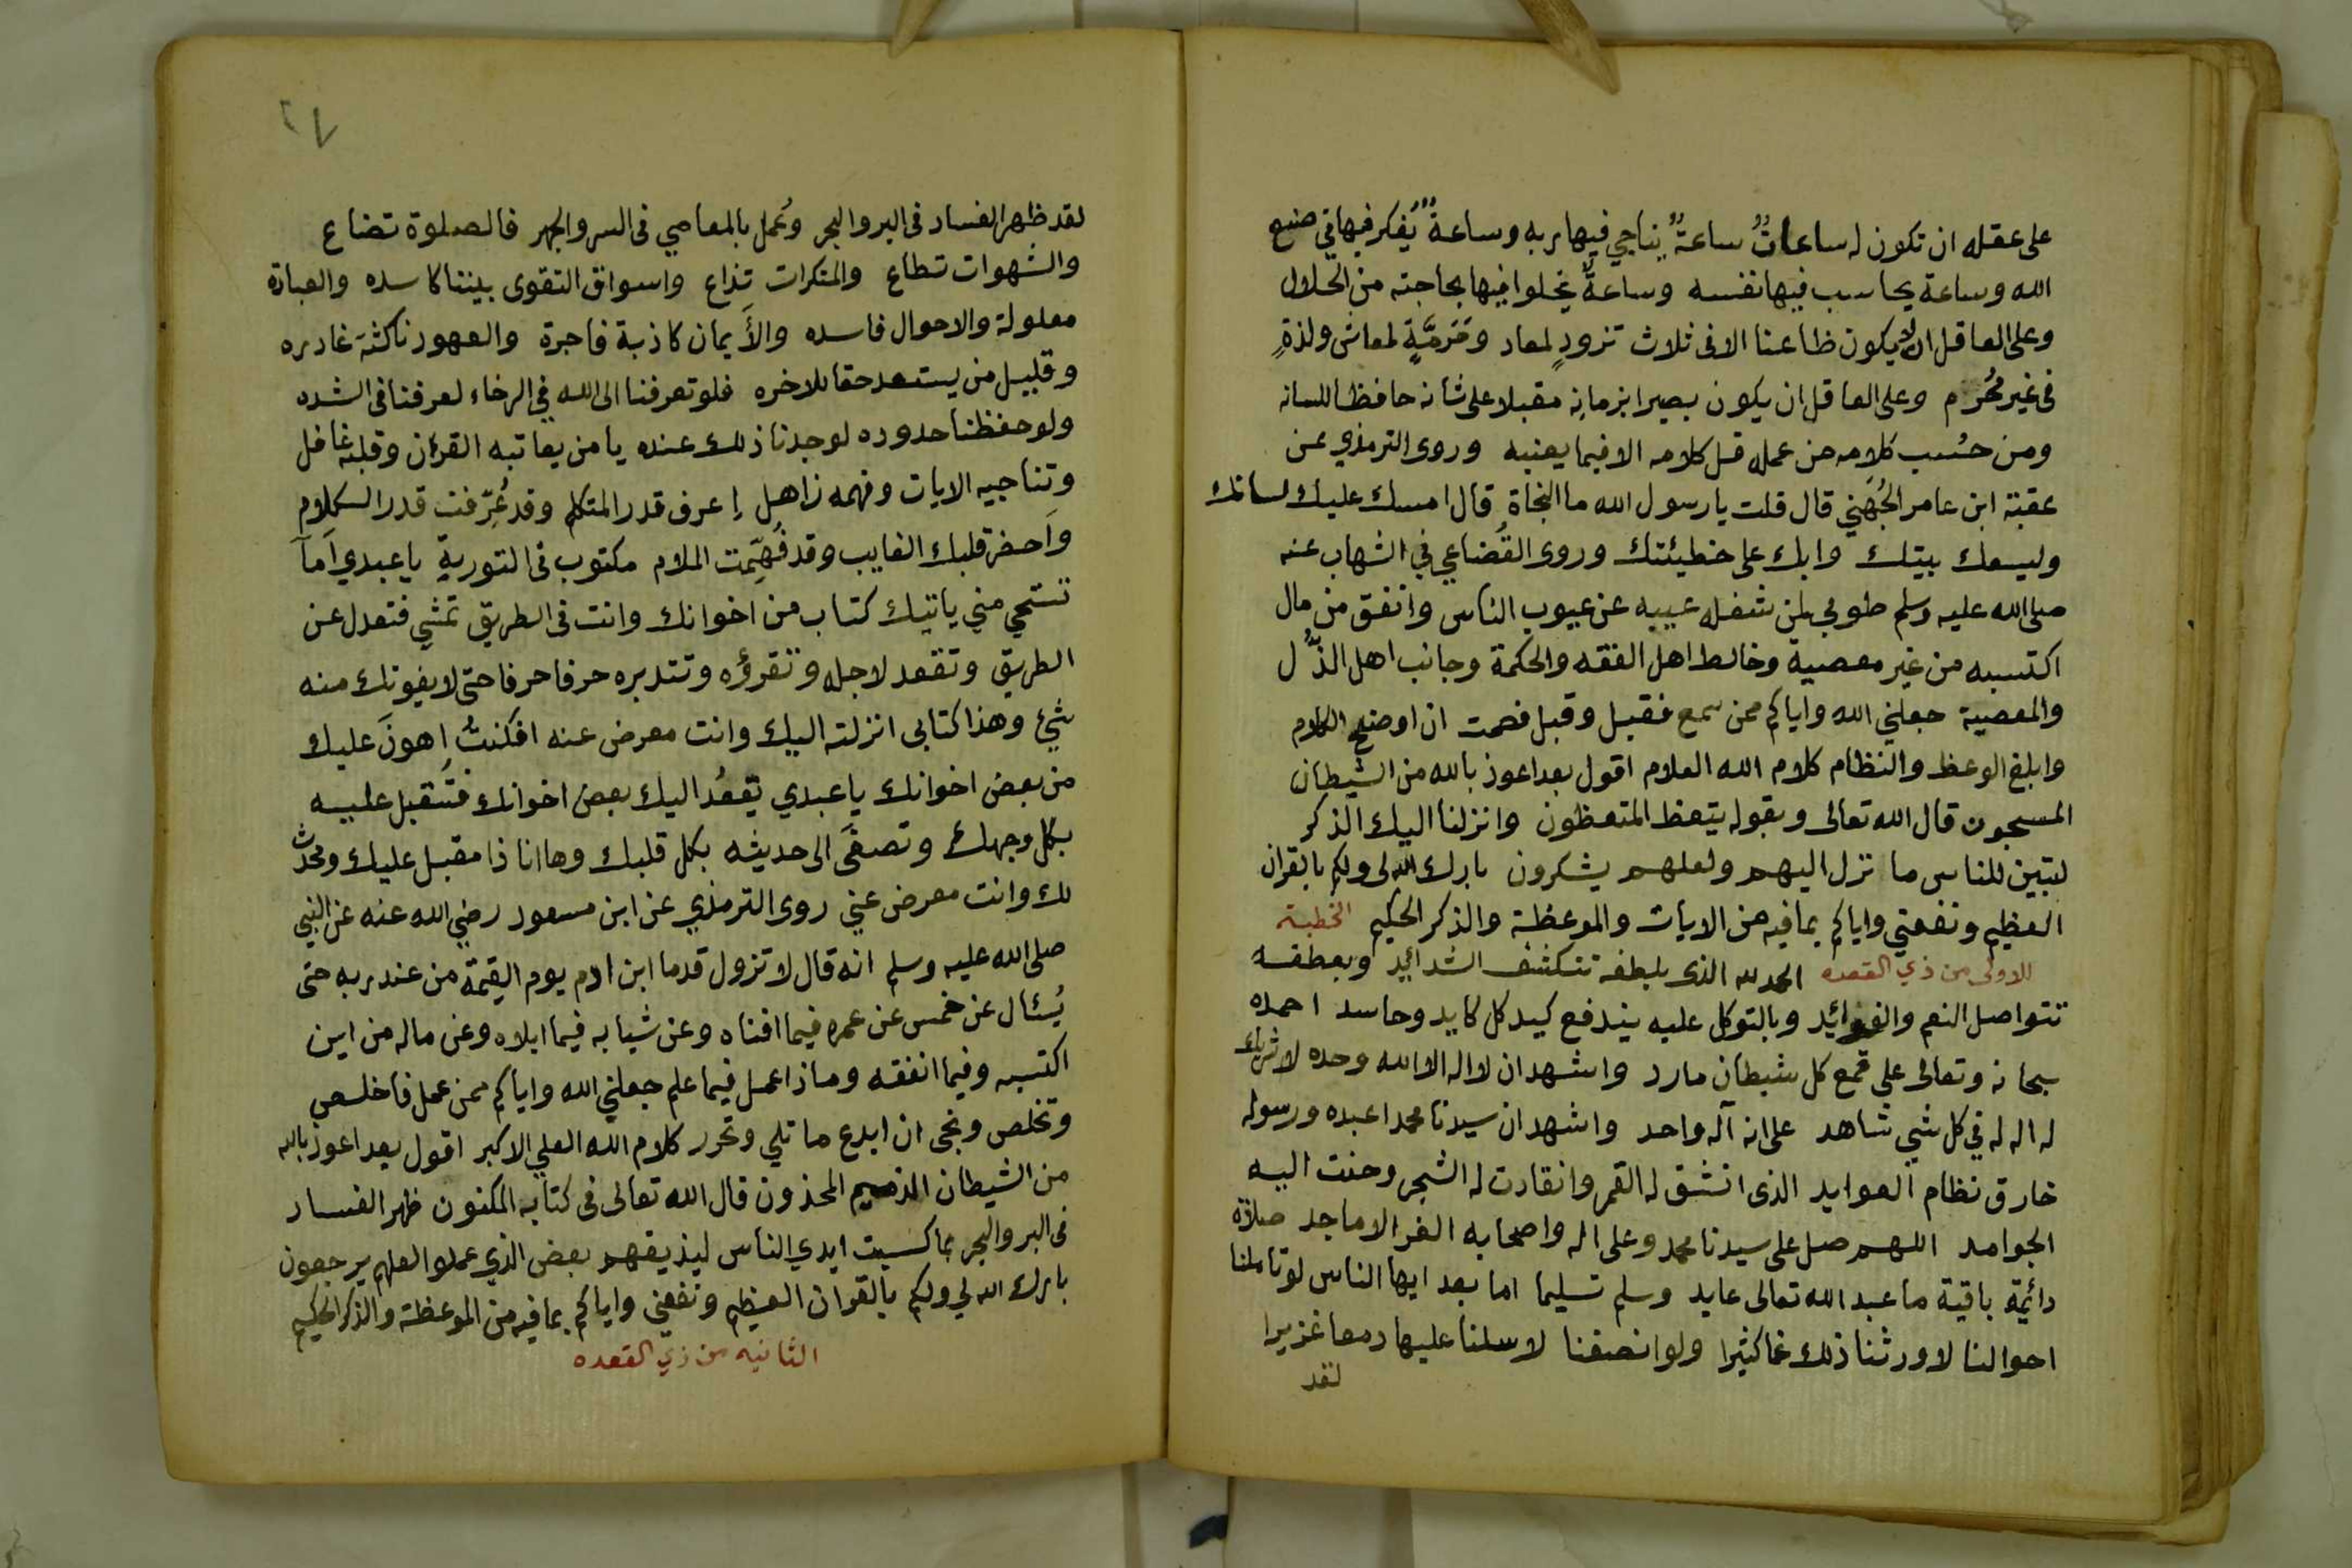 على عقله ان تكون له ساعاتٌ ساعةٌ يناجي فيها ربه وساعةٌ يُفكر فيها في صنع
الله وساعة يحاسب فيها نفسه وساعةٌ يخلوا فيها بحاجته من الحلال
وعلى العاقل ان لا يكون ظاعنا الا في ثلاث تزودٍ لمعاد ومَرمَّةٍ لمعاش ولذةٍ
في غير محُرّم وعلى العاقل ان يكون بصيرا بزمانه مقبلا على شانه حافظا للسانه
ومن حسُب كلامه من عمله قل كلامه الا فيما يعنيه وروى الترمذي عن
عقبة ابن عامر الجُهَني قال قلت يا رسول الله ما النجاة قال امسك عليك لسانك
وليسعك بيتك وابك على خطيئتك وروى القُضاعي في الشهاب عنه
صلى الله عليه وسلم طوبي لمن شغله عيبه عن عيوب الناس وانفق من مال
اكتسبه من غير معصية وخالط اهل الفقه والحكمة وجانب اهل الذُّل
والمعصية جعلني الله واياكم ممن سمع فقبل وقبل فصمت ان اوضح الكلام
وابلغ الوعظ والنظام كلام الله العلام اقول بعد اعوذ بالله من الشيطان
المسجون قال الله تعالى وبقوله يتعظ المتعظون وانزلنا اليك الذكر
لتبين للناس ما نزل اليهم ولعلهم يشكرون بارك الله لى ولكم بالقران
العظيم ونفعني واياكم بما فيه من الايات والموعظة والذكر الحكيم الخطبة
للاولى من ذي القعده الحمد لله الذى بلطفه تنكشف الشدائيد وبعطفه
تتواصل النعم والفوائد وبالتوكل عليه يندفع كيد كل كايد وحاسد احمده
سبحانه وتعالى على قمع كل شيطان مارد واشهد ان لا اله الا الله وحده لا شريك
له اله له في كل شي شاهد على انه آله واحد واشهد ان سيدنا محمدا عبده ورسوله
خارق نظام العوايد الذى انشق له القمر وانقادت له الشجر وحنت اليه
الجوامد اللهم صل على سيدنا محمد وعلى اله واصحابه الغر الاماجد صلاة
دائمة باقية ما عبد الله تعالى عابد وسلم تسليما اما بعد ايها الناس لو تاملنا
احوالنا لاورثنا ذلك غما كثيرا ولو انصفنا لاسلنا عليها دمعا غزيرا
لقد
٢٧
لقد ظهر الفساد في البر والبحر وعُمل بالمعاصي في السر والجهر فالصلوة تضاع
والشهوات تطاع والمنكرات تذاع واسواق التقوى بيننا كاسده والعبادة
معلولة والاحوال فاسده والأَيمان كاذبة فاجرة والعهود ناكثة غادره
وقليل من يستعد حقا للاخره فلو تعرفنا الى الله في الرخاء لعرفنا في الشده
ولو حفظنا حدوده لوجدنا ذلك عنده يا من يعاتبه القرءان وقلبه غافل
وتناجيه الايات وفهمه ذاهل إعرف قدر المتكلم وقد عُرِّفت قدر الكلام
وأحضر قلبك الغايب وقد فُهِّمت الملام مكتوب في التورية يا عبدي أَمَآ
تستحي مني ياتيك كتاب من اخوانك وانت في الطريق تمشي فتعدل عن
الطريق وتقعد لاجله وتقرؤه وتتدبره حرفا حرفا حتى لا يفوتك منه
شئ وهذا كتابي انزلته اليك وانت معرض عنه افكنتُ إهونَ عليك
من بعض اخوانك يا عبدي يقعُد اليك بعض اخوانك فتُقبل عليه
بكل وجهك وتصغَى الى حديثه بكل قلبك وها انا ذا مقبل عليك ومحدّث
لك وانت معرض عني روى الترمذي عن ابن مسعود رضي الله عنه عن النبي
صلى الله عليه وسلم انه قال لا تزول قدما ابن ادم يوم القيمة من عند ربه حتى
يُسْئال عن خمس عن عمره فيما افناه وعن شبابه فيما ابلاه وعن ماله من اين
اكتسبه وفيما انفقه وماذا عمل فيما علم جعلني الله واياكم ممن عمل فاخلص
وتخلص ونجى ان ابدع ما تلي وتحرر كلام الله العلي الاكبر اقول بعد اعوذ بالله
من الشيطان الذميم المحذون قال الله تعالى في كتابه المكنون ظهر الفساد
في البر والبحر بما كسبت ايدي الناس ليذيقهم بعض الذي عملوا لعلهم يرجعون
بارك الله لي ولكم بالقران العظيم ونفعني واياكم بما فيه من الموعظة والذكر الحكيم
الثانيه من ذي القعده